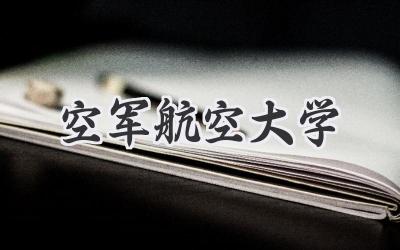 空军航空大学